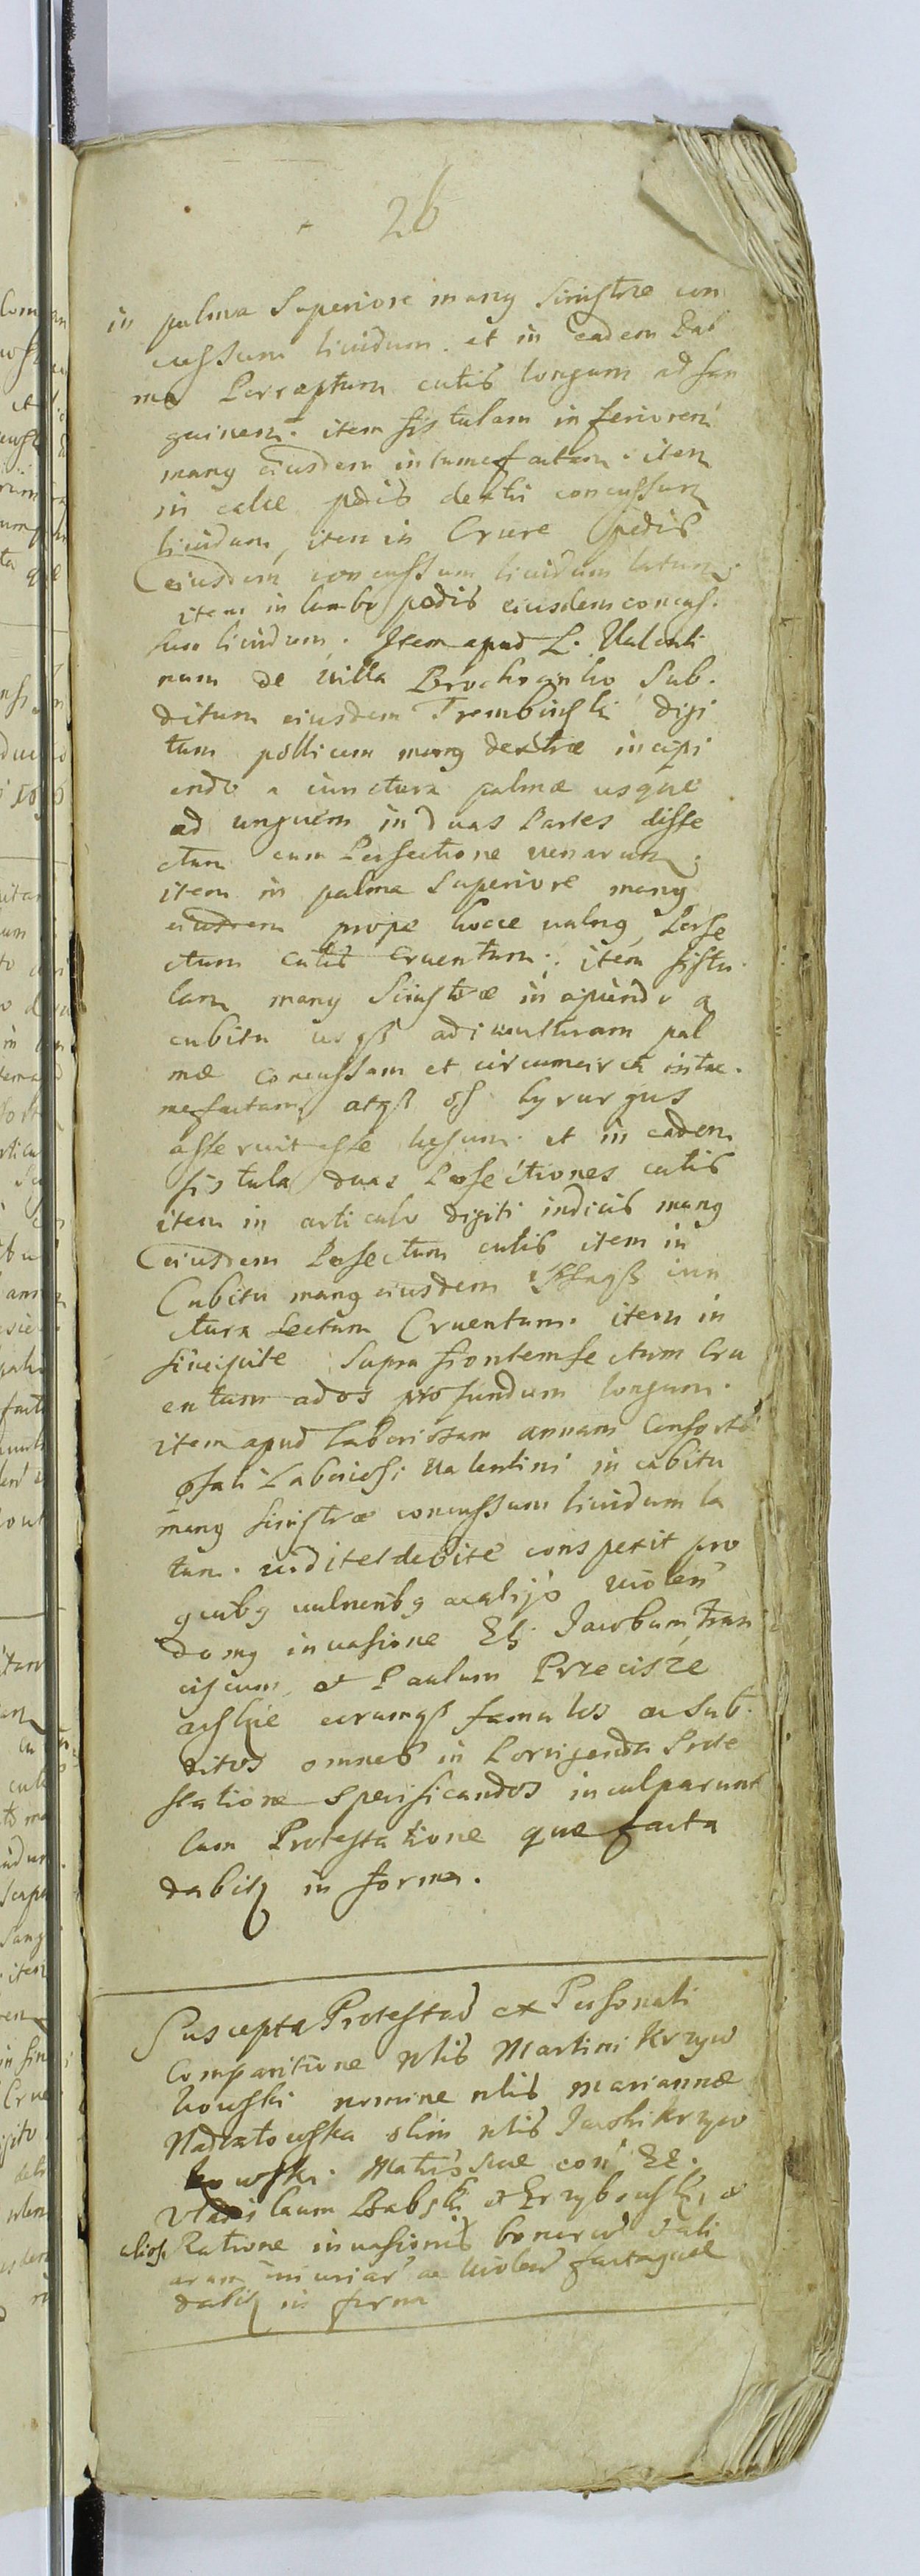 26
in palma Superiore manq Sinistræ con
cussum liuidum. et in eadem Pal
ma Perreptum cutis longum ad san
guinem. item fistulam inferiorem
manq eiusdem intumefactam. item
in calce pedis dextri concussum
liuidum, item in Crure pedis
eiusdem concussum liuidum latum.
item in lumbo pedis eiusdem concus.
sum liuidum. Item apud L. Valenti
num de Villa Brochranko Sub.
ditum eiusdem Trembinski digi
tum pollicem manq dextræ incipi
endo a iunctura palmæ usque
ad unguem in duas Partes disse
ctum cum Persectione venarum.
item in palma Superiore manq
eiusdem prope hocce vulnq Perse
ctum cutis cruentum. item fistu
lam manq Sinistræ incipiendo a
cubitu usqß ad iuncturam pal
mæ concussam et circumcirca intu.
mefactam, atqß os hyrurgus
asseruit esse læsum. et in eadem
fistula duas Persectiones cutis
item in articulo digiti indicis manq
eiusdem Persectum cutis item in
Cubitu manq eiusdem iun
ctura Sectum Cruentum. item in
sincipite Supra frontem sectum Cru
entum ad os profundum longum.
item apud laboriosam annam Consorte
Laboriosi Valentini in cubitu
manq Sinistræ concussum liuidum la
tum. vidit et debite conspexit pro
quibq vulneribq ac alijs violen
domq inuasione Jacobum Fran
ciscum, et Paulum
acsłie eorumqß famulos ac Sub.
ditos omnes in Porrigenda Prote
statione specificandos inculparunt
cum Protestatione que facta
dabit in forma.
Suscepta Protestaō ex Personali
Comparitione Nlis Martini Krzyw
kowski nomine nlis Mariannæ
Nadratowska olim nlis Jacobi Krzyw
kowski. Matris suæ con
Vladislaum Babski et Grzybowski, et
alios. Ratione inuasionis bonorū vali
arum iniuriar ac violen facta que
dabit in forma